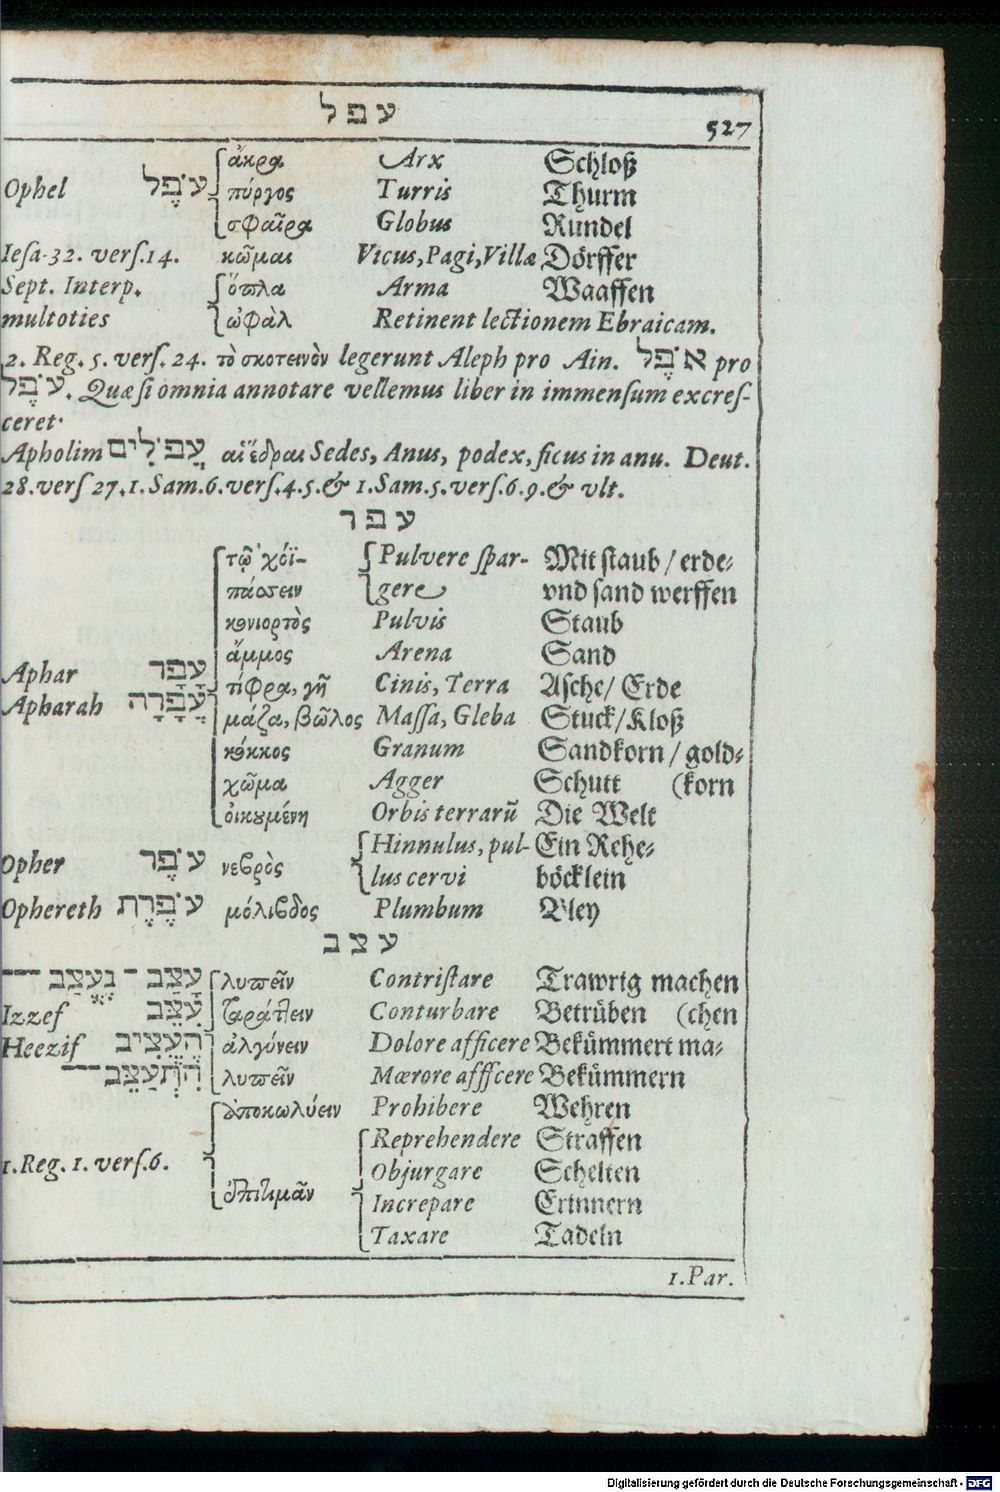 ע פ ל
527
ἄκρα Arx Schloß
Ophel עֹפֶל πύργος Turris Thurm
σφαῖρα Globus Rundel
Iesa. 32. verſ. 14. κῶμαι Vicus, Pagi, Villæ Dörffer
Sept. Interp. ὅπλα Arma Waaffen
multoties ὠφὰλ Retinent lectionem Ebraicam.
2. Reg. 5. verſ. 24. τὸ σκοτεινὸν legerunt Aleph pro Ain. אֹפֶל pro
עֹפֶל. Quæ ſi omnia annotare vellemus liber in immenſum excreſ-
ceret.
Apholim עֳפָלִים αἱ ἕδραι Sedes, Anus, podex, ficus in anu. Deut.
28. verſ 27. 1. Sam. 6. verſ. 4. 5. & 1. Sam. 5. verſ. 6. 9. & vlt.
ע פ ר
τῷ χόϊ- Pulvere ſpar- Mit ſtaub / erde-
πάσσειν gere vnd ſand werffen
κονιορτὸς Pulvis Staub
ἄμμος Arena Sand
Aphar עָפָר τέφρα, γῆ Cinis, Terra Aſche / Erde
Apharah עֲפָרָה μάζα, βῶλος Maſſa, Gleba Stuck / Kloß
κόκκος Granum Sandkorn / gold-
χῶμα Agger Schutt (korn
οἰκουμένη Orbis terrarū Die Welt
Hinnulus, pul- Ein Rehe-
Opher עֹפֶר νεβρὸς lus cervi böcklein
Ophereth עֹפֶרֶת μόλιβδος Plumbum Bley
ע צ ב
עָצַב - נֶעֱצַב λυπεῖν Contriſtare Trawrig machen
Izzef עִצֵּב ταράττειν Conturbare Betrüben (chen
Heezif הֶעֱצִיב ἀλγύνειν Dolore afficere Bekümmert ma-
הִתְעַצֵּב λυπεῖν Mœrore afficere Bekümmern
ἀποκωλύειν Prohibere Wehren
Reprehendere Straffen
1. Reg. 1. verſ. 6. Objurgare Schelten
ἐπιτιμᾶν Increpare Erinnern
Taxare Tadeln
1. Par.
Digitalisierung gefördert durch die Deutsche Forschungsgemeinschaft - DFG